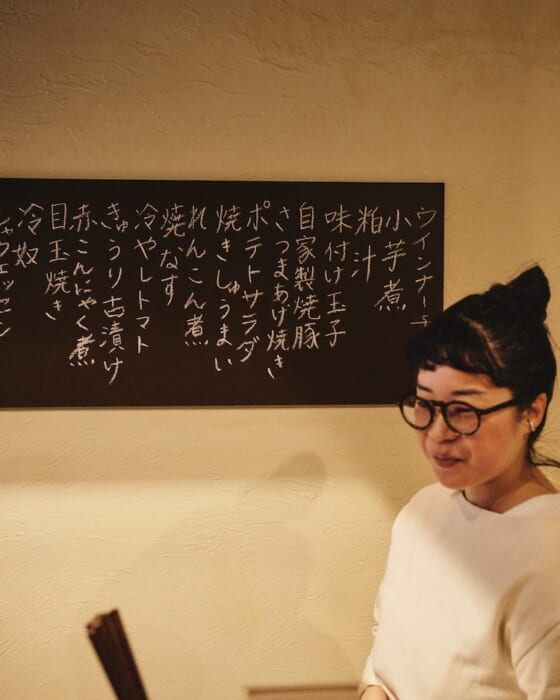 ウインナー
小芋煮
粕汁
味付け玉子
自家製焼豚
さつまあげ焼き
ポテトサラダ
焼きしゅうまい
れんこん煮
焼なす
冷やしトマト
きゅうり古漬け
赤こんにゃく煮
目玉焼き
冷奴
シャウエッセン